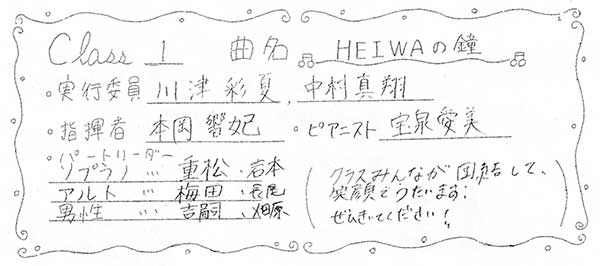 Class 1 曲名 HEIWAの鐘
・実行委員 川津彩夏、中村真翔
・指揮者 本岡響妃 ・ピアニスト 宝泉愛美
・パートリーダー
ソプラノ 〃 重松・岩本
アルト 〃 梅田・長尾
男性 〃 吉嗣・畑原
(クラスみんなが団結して、
笑顔でうたいます!
ぜひきいてください!)